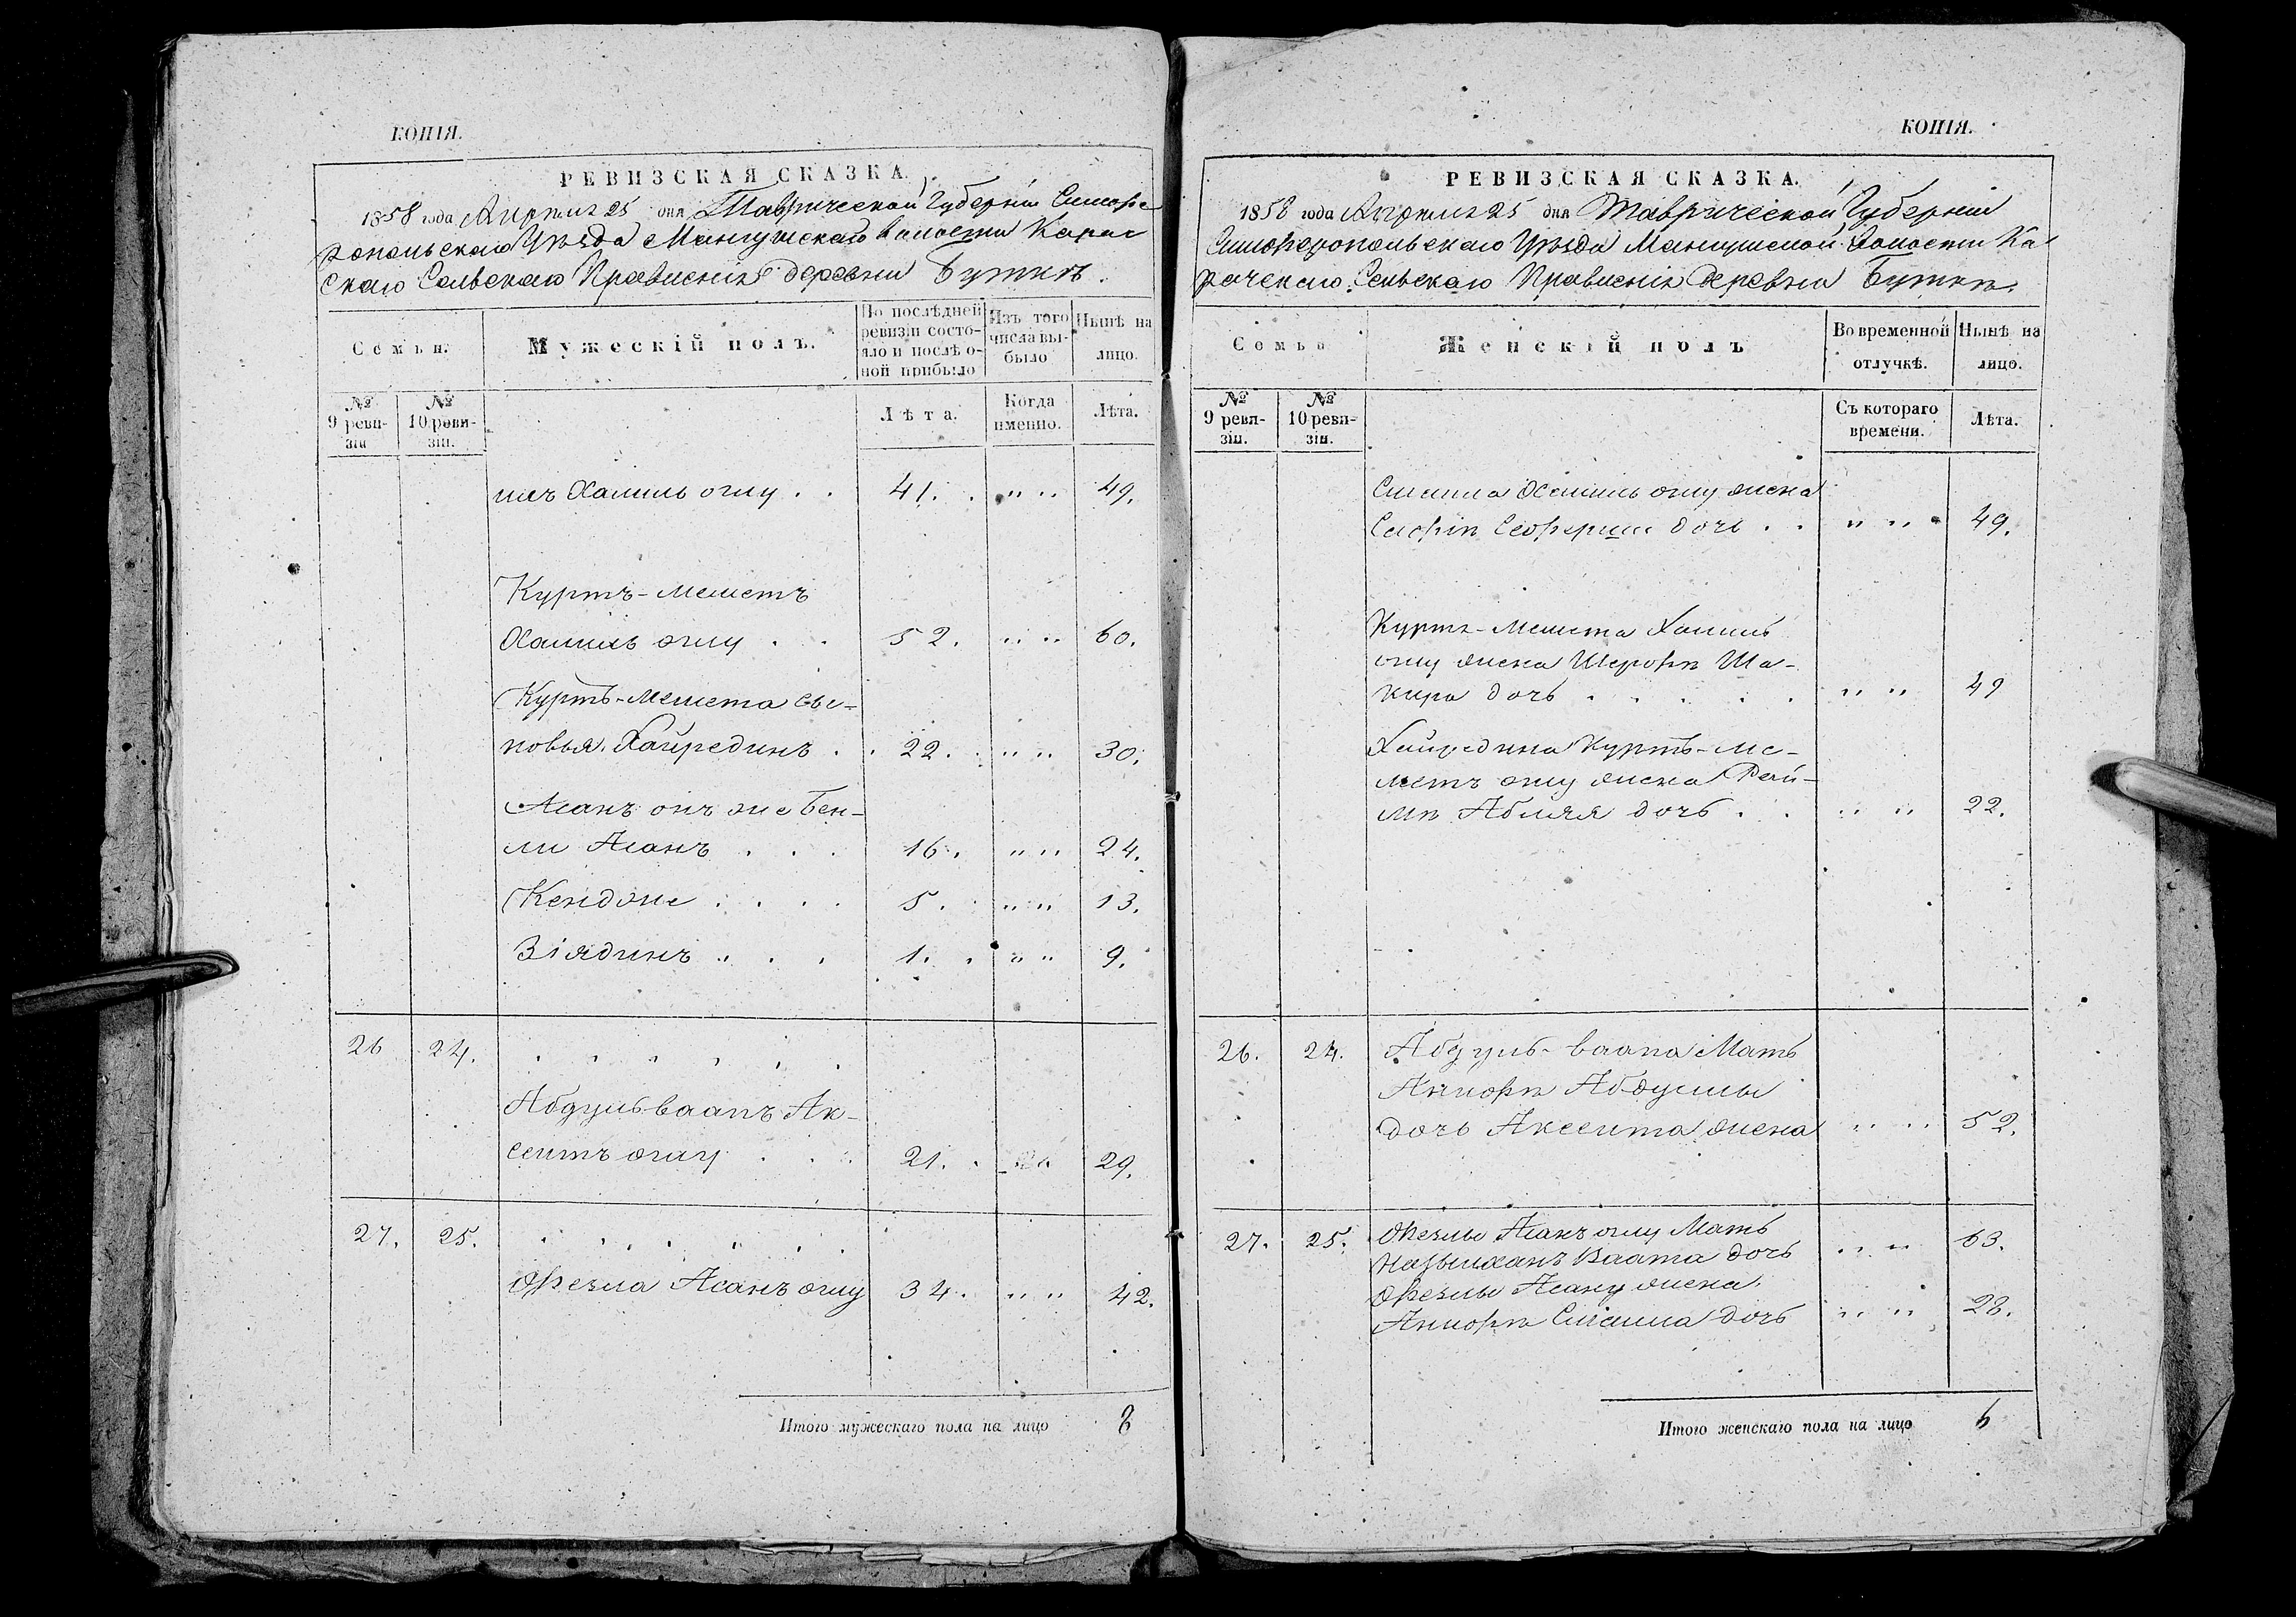 КОПІЯ.
РЕВИЗСКАЯ СКАЗКА.
1858 года Апрѣля 25 дня Таврической Губерніи Симфе
ропольскаго Уѣзда Мангушской волости Карас
скаго Сельскаго Правленія деревни
Семьи.
Мужескій полъ.
По послѣдней
ревизіи состо-
яло и послѣ о-
ной прибыло
Изъ того
числа вы-
было
Нынѣ на
лицо.
№
9 реви-
зіи
№
10 реви-
зіи.
Лѣта.
Когда
именно.
Лѣта.
илъ Халиль оглу . . 41. " " 49.
Куртъ-Меметъ
Халиль оглу . . 52. " " 60.
Куртъ-Мемета сы-
новья. Хайрединъ . . 22. " " 30.
Асанъ онъ же Бек-
ли Асанъ . . . 16. " " 24.
Кендже . . . . 5. " " 13.
Зіядинъ . . . 1. " " 9.
26 24. . . . . . .
Абдульваапъ Ак-
сеитъ оглу . . . 21. " " 29.
27. 25. . . . . . .
Фезла Асанъ оглу 34. " " 42.
Итого мужескаго пола на лицо 8
КОПІЯ.
РЕВИЗСКАЯ СКАЗКА.
1858 года Апрѣля 25 дня Таврической Губерніи
Симферопольскаго Уѣзда Мангушской Волости Ка
рачскаго Сельскаго Правленія деревни
Семьи
Женскій полъ
Во временной
отлучкѣ.
Нынѣ на
лицо.
№
9 реви-
зіи.
№
10 реви-
зіи.
Съ котораго
времени.
Лѣта.
Смаила Халиль оглу жена
дочь . . " " 49.
Куртъ-Мемета Халиль
оглу жена Шерфе Ша-
кира дочь . . . . . " " 49
Хайредина Куртъ-Ме-
метъ оглу жена
дочь . . " " 22.
26. 24. Абдуль-ваапа Мать
Абдуллы
дочь Аксеита жена " " 52.
27. 25. Фезлы Асанъ оглу Мать
Ваапа дочь " " 63.
Фезлы Асану жена
Смаила дочь " " 28.
Итого женскаго пола на лицо 6